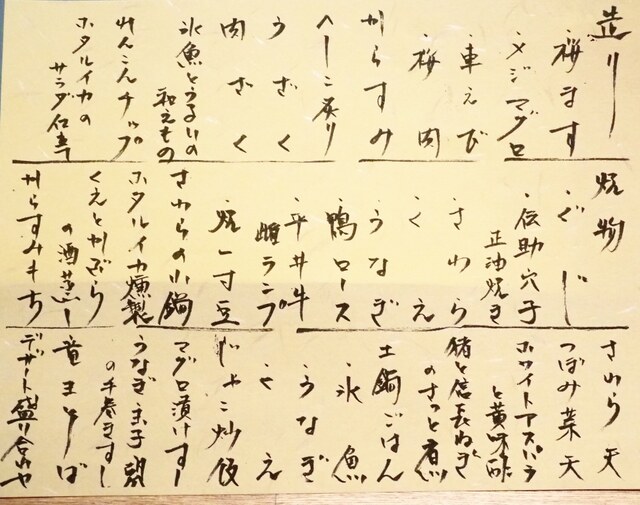 造り
・桜ます
・メジマグロ
・車えび
・梅肉
からすみ
へしこ炙り
うざく
肉ざく
氷魚とうるいの
和えもの
れんこんチップ
ホタルイカの
サラダ仕立
焼物
・ぐじ
・伝助穴子
正油焼き
・さわら
・くえ
・うなぎ
・鴨ロース
・平井牛
雌ランプ
・焼一寸豆
さわらの小鍋
ホタルイカ燻製
くえとかぶら
の酒蒸し
からすみもち
さわら天
つぼみ菜天
ホワイトアスパラ
と黄味酢
猪と信長ねぎ
のさっと煮
土鍋ごはん
・氷魚
・うなぎ
・くえ
じゃこ炒飯
マグロ漬けすし
うなぎ玉子
の手巻きすし
竜まそば
デザート盛り合わせ